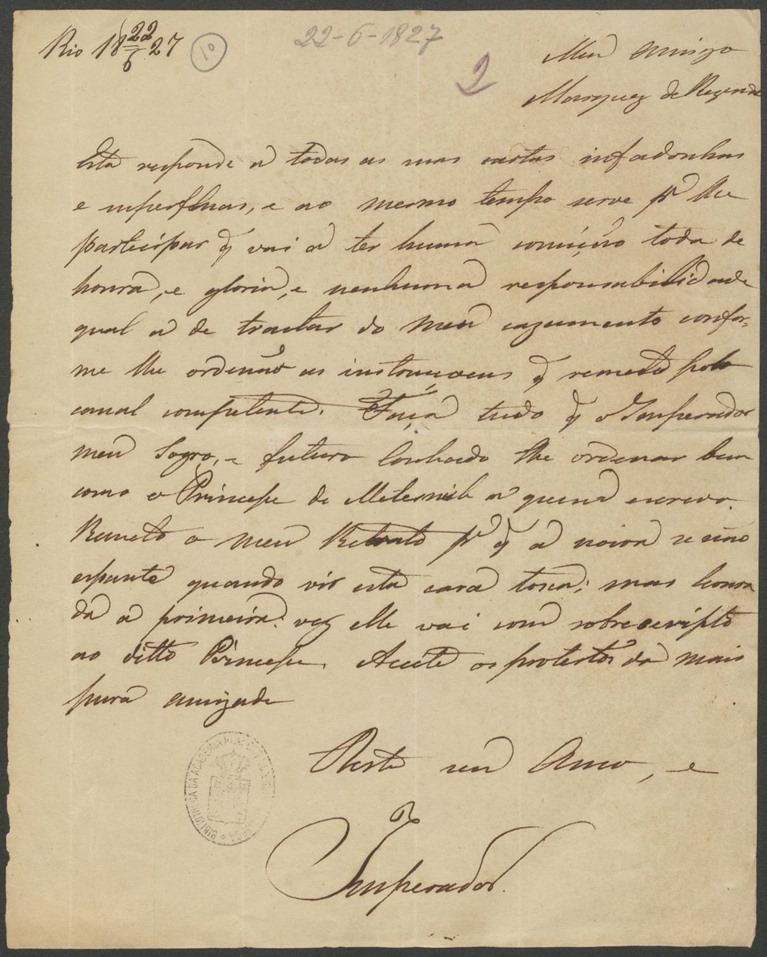 Rio 18 22/6 27
10
22-6-1827
2
Meu Amigo
Marquez de Rezende
Esta responde a todas as suas cartas infadonhas
e superfluas, e ao mesmo tempo serve pª lhe
participar q̃ vai a ter huma comição toda de
honra, e gloria, e nenhuma responsabilidade
qual a de tractar do meu cazamento confor-
me lhe ordenão as instrucçoens q̃ remeto pelo
canal competente. Faça tudo q̃ o Imperador
meu Sogro, e futuro Cunhado lhe ordenar bem
como o Principe de Meternik a quem escrevo.
Remeto o meu Retrato pª q̃ a noiva se não
espante quando vir esta cara tosca; mas honra
da a primeira vez elle vai com sobrescripto
ao ditto Principe. Aceite os protestos da mais
pura amizade
Deste seu Amo, e
Imperador.
BIBLIOTHECA DA ACADEMIA